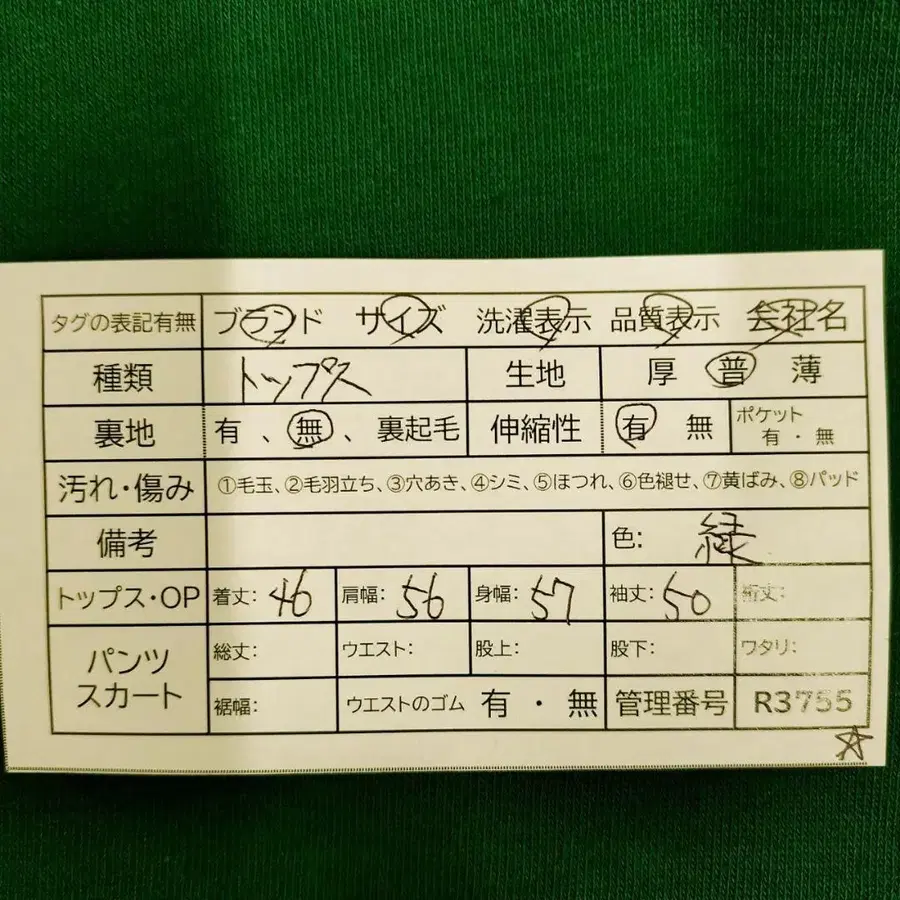 タグの表記有無 ブランド サイズ 洗濯表示 品質表示 会社名
種類 トップス 生地 厚 普 薄
裏地 有 、 無 、 裏起毛 伸縮性 有 無 ポケット 有 ・ 無
汚れ・傷み ①毛玉、②毛羽立ち、③穴あき、④シミ、⑤ほつれ、⑥色褪せ、⑦黄ばみ、⑧パッド
備考 色: 緑
トップス・OP 着丈: 46 肩幅: 56 身幅: 57 袖丈: 50 裄丈:
パンツ スカート 総丈: ウエスト: 股上: 股下: ワタリ:
裾幅: ウエストのゴム 有 ・ 無 管理番号 R3755